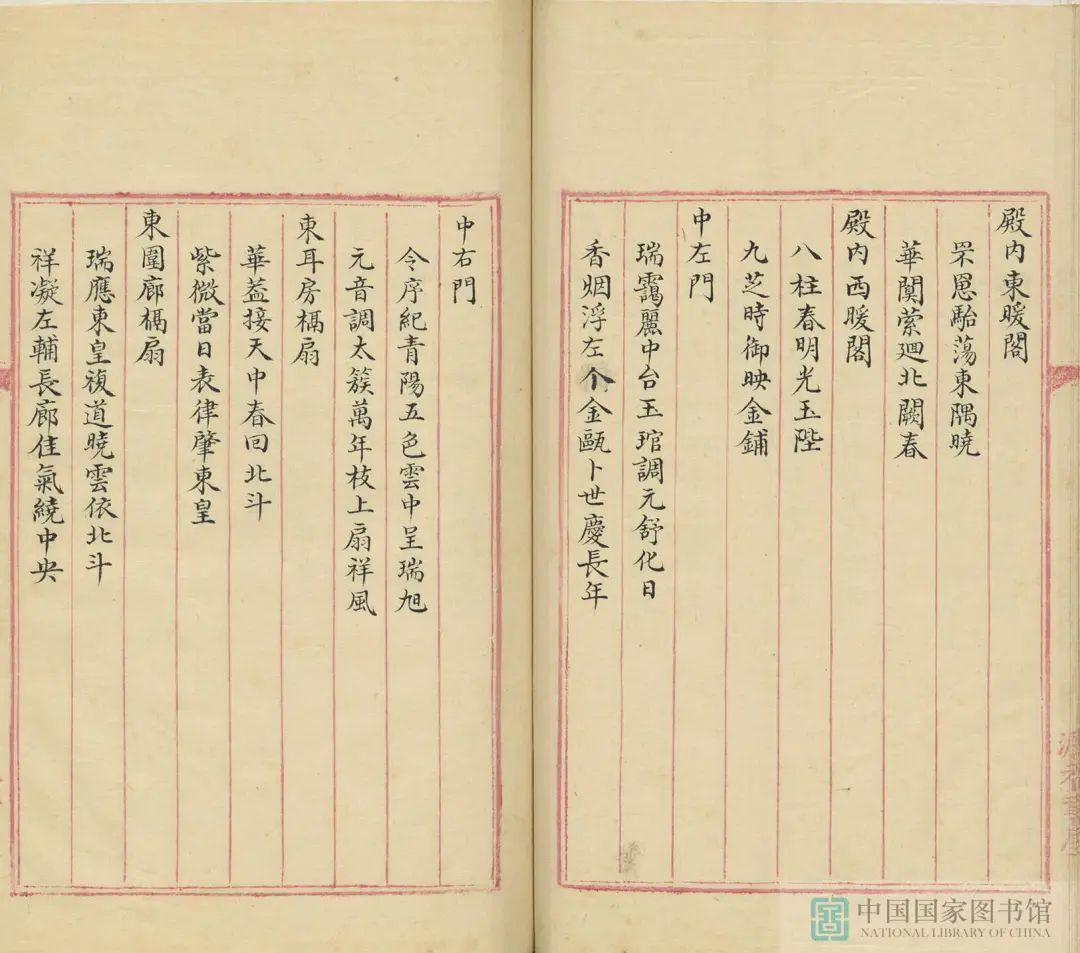 殿内東暖閣
罘罳駘蕩東隅曉
華闑縈廻北闕春
殿内西暖閣
八柱春明光玉陛
九芝時御映金鋪
中左門
瑞靄麗中台玉琯調元舒化日
香烟浮左个金甌卜世慶長年
中右門
令序紀青陽五色雲中呈瑞旭
元音調太簇萬年枝上扇祥風
東耳房槅扇
華葢接天中春回北斗
紫微當日表律肇東皇
東圍廊槅扇
瑞應東皇複道曉雲依北斗
祥凝左輔長廊佳氣繞中央
中国国家图书馆
NATIONAL LIBRARY OF CHINA